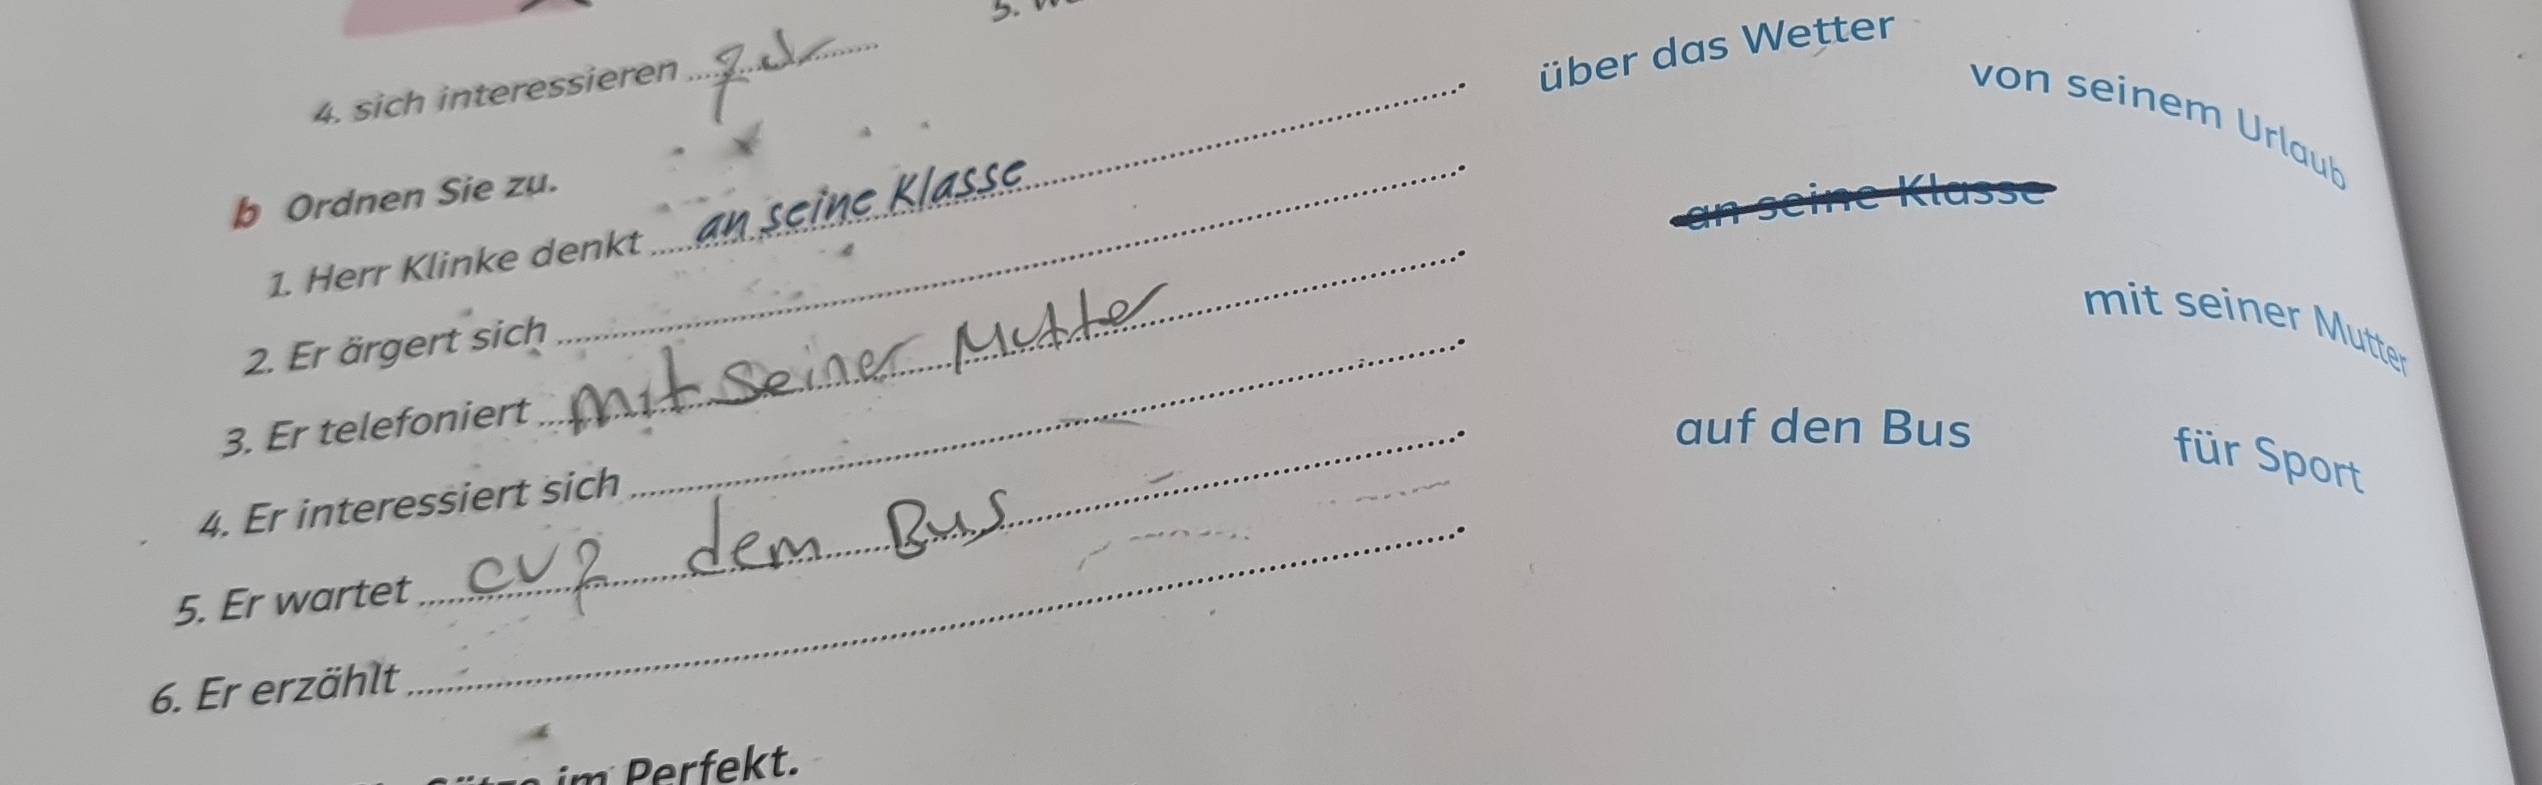 4. sich interessieren für
b Ordnen Sie zu.
1. Herr Klinke denkt an seine Klasse.
2. Er ärgert sich
3. Er telefoniert mit seiner Mutter.
4. Er interessiert sich
5. Er wartet auf dem Bus.
6. Er erzählt
im Perfekt.
über das Wetter
von seinem Urlaub
an seine Klasse
mit seiner Mutter
auf den Bus
für Sport